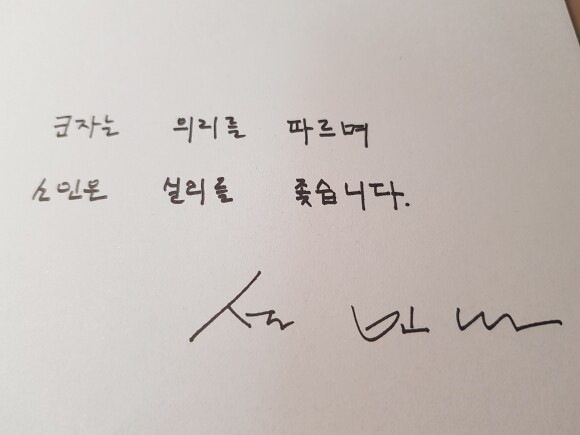 군자는 의리를 따르며
소인은 실리를 좇습니다.